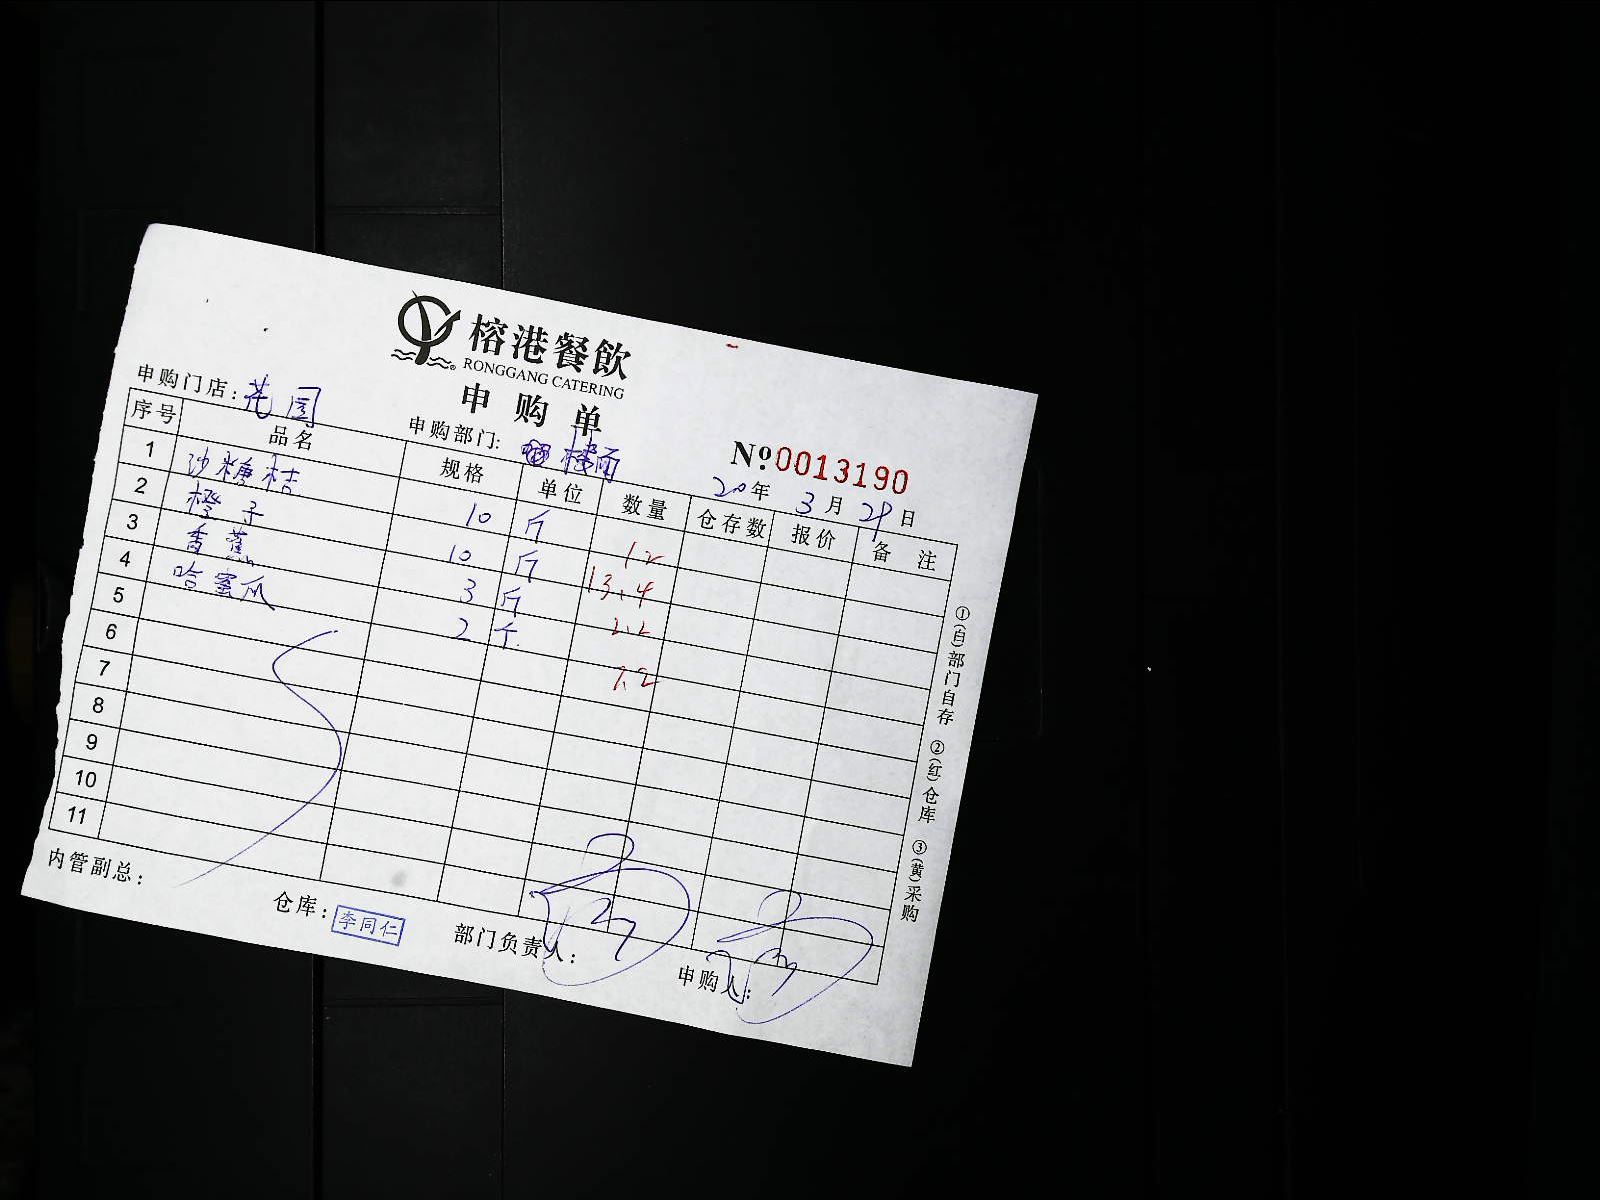 榕港餐飲
RONGGANG CATERING
申购单
申购门店：花园
申购部门：楼面
Nº0013190
20年 3月 29日
序号 品名 规格 单位 数量 仓存数 报价 备注
1 沙糖桔 10 斤 12
2 橙子 10 斤 13.4
3 香蕉 3 斤 2.2
4 哈蜜瓜 2 个 7.2
5
6
7
8
9
10
11
①(白)部门自存 ②(红)仓库 ③(黄)采购
内管副总：
仓库：李同仁
部门负责人：
申购人：